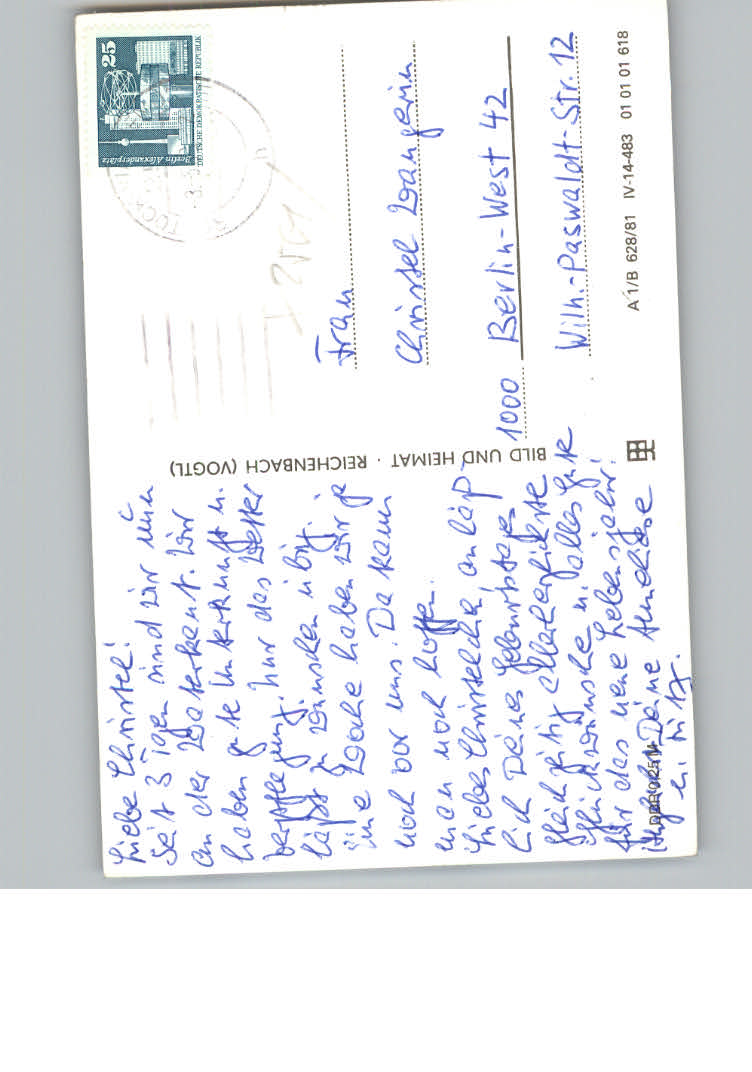 Liebe Christel!
Seit 3 Tagen sind wir nun
an der Waterkant. Wir
haben gute Unterkunft u.
Verpflegung. Nur das Wetter
läßt zu wünschen übrig.
Eine Woche haben wir ja
noch vor uns. Da kann
man noch hoffen.
Liebes Christelchen, anläß-
lich Deines Geburtstages
gleichzeitig allerherzlichste
Glückwünsche u. alles Gute
für das neue Lebensjahr!
Deine Anneliese
u. Fritz.
DDR 0,25 M
BILD UND HEIMAT · REICHENBACH (VOGTL)
25
DEUTSCHE DEMOKRATISCHE REPUBLIK
Berlin Alexanderplatz
Frau
Christel Wangerin
1000 Berlin-West 42
Wilh.-Paswaldt-Str. 12
A 1/B 628/81 IV-14-483 01 01 01 618